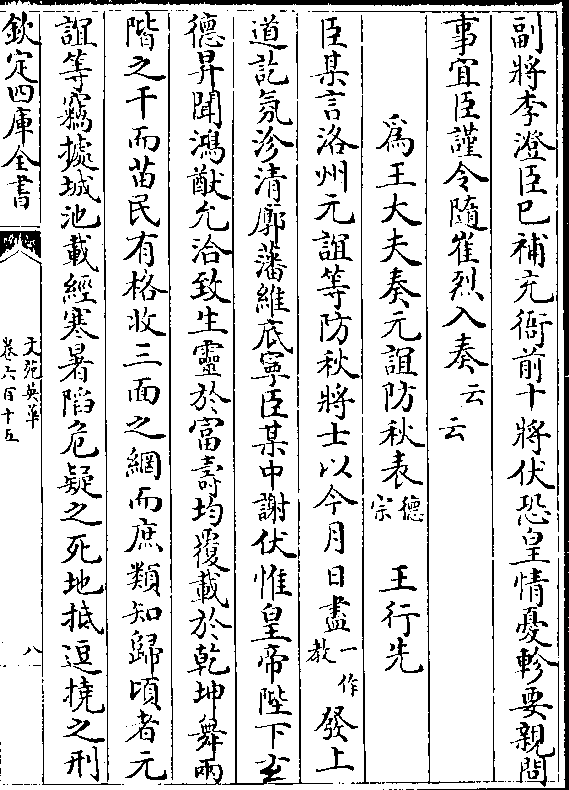 副將李澄臣已補充衙前十將伏恐皇情憂軫要親問
事宜臣謹令隨崔烈入奏云云
為王大夫奏元誼防秋表德宗 王行先
臣某言洛州元誼等防秋將士以今月日盡一作教發上
道訖氛沴清廓藩維底寧臣某中謝伏惟皇帝陛下玄
德昇聞鴻猷允洽致生靈於富壽均覆載於乾坤舞兩
階之干而苗民有格收三面之網而庶類知歸頃者元
誼等竊據城池載經寒暑陷危疑之死地抵逗撓之刑
欽定四庫全書
文苑英華
卷六百十五
八